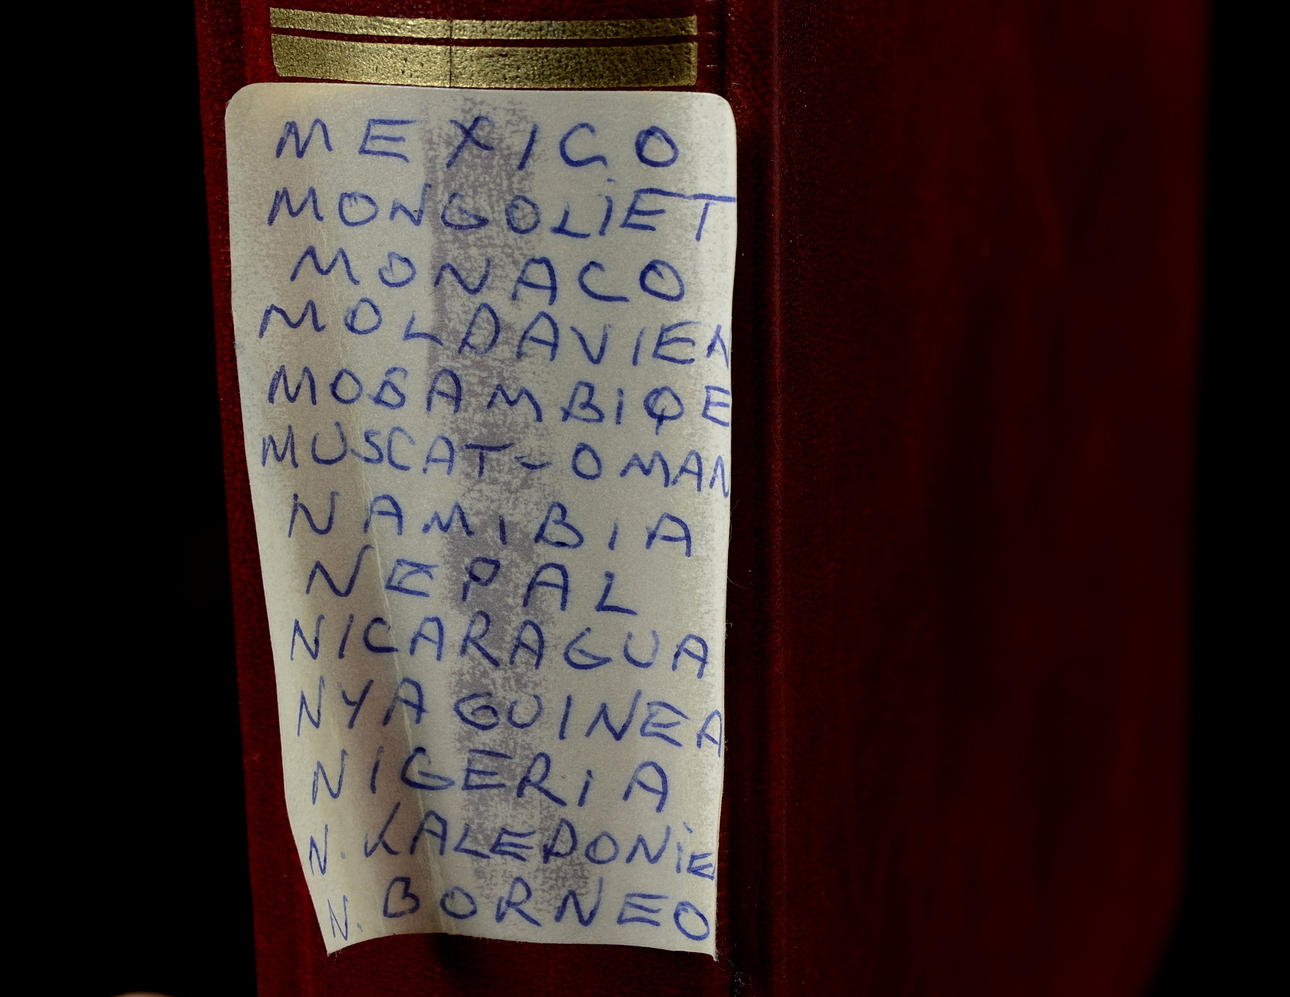 MEXICO
MONGOLIET
MONACO
MOLDAVIEN
MOSAMBIQE
MUSCAT-OMAN
NAMIBIA
NEPAL
NICARAGUA
NYA GUINEA
NIGERIA
N. KALEDONIE
N. BORNEO